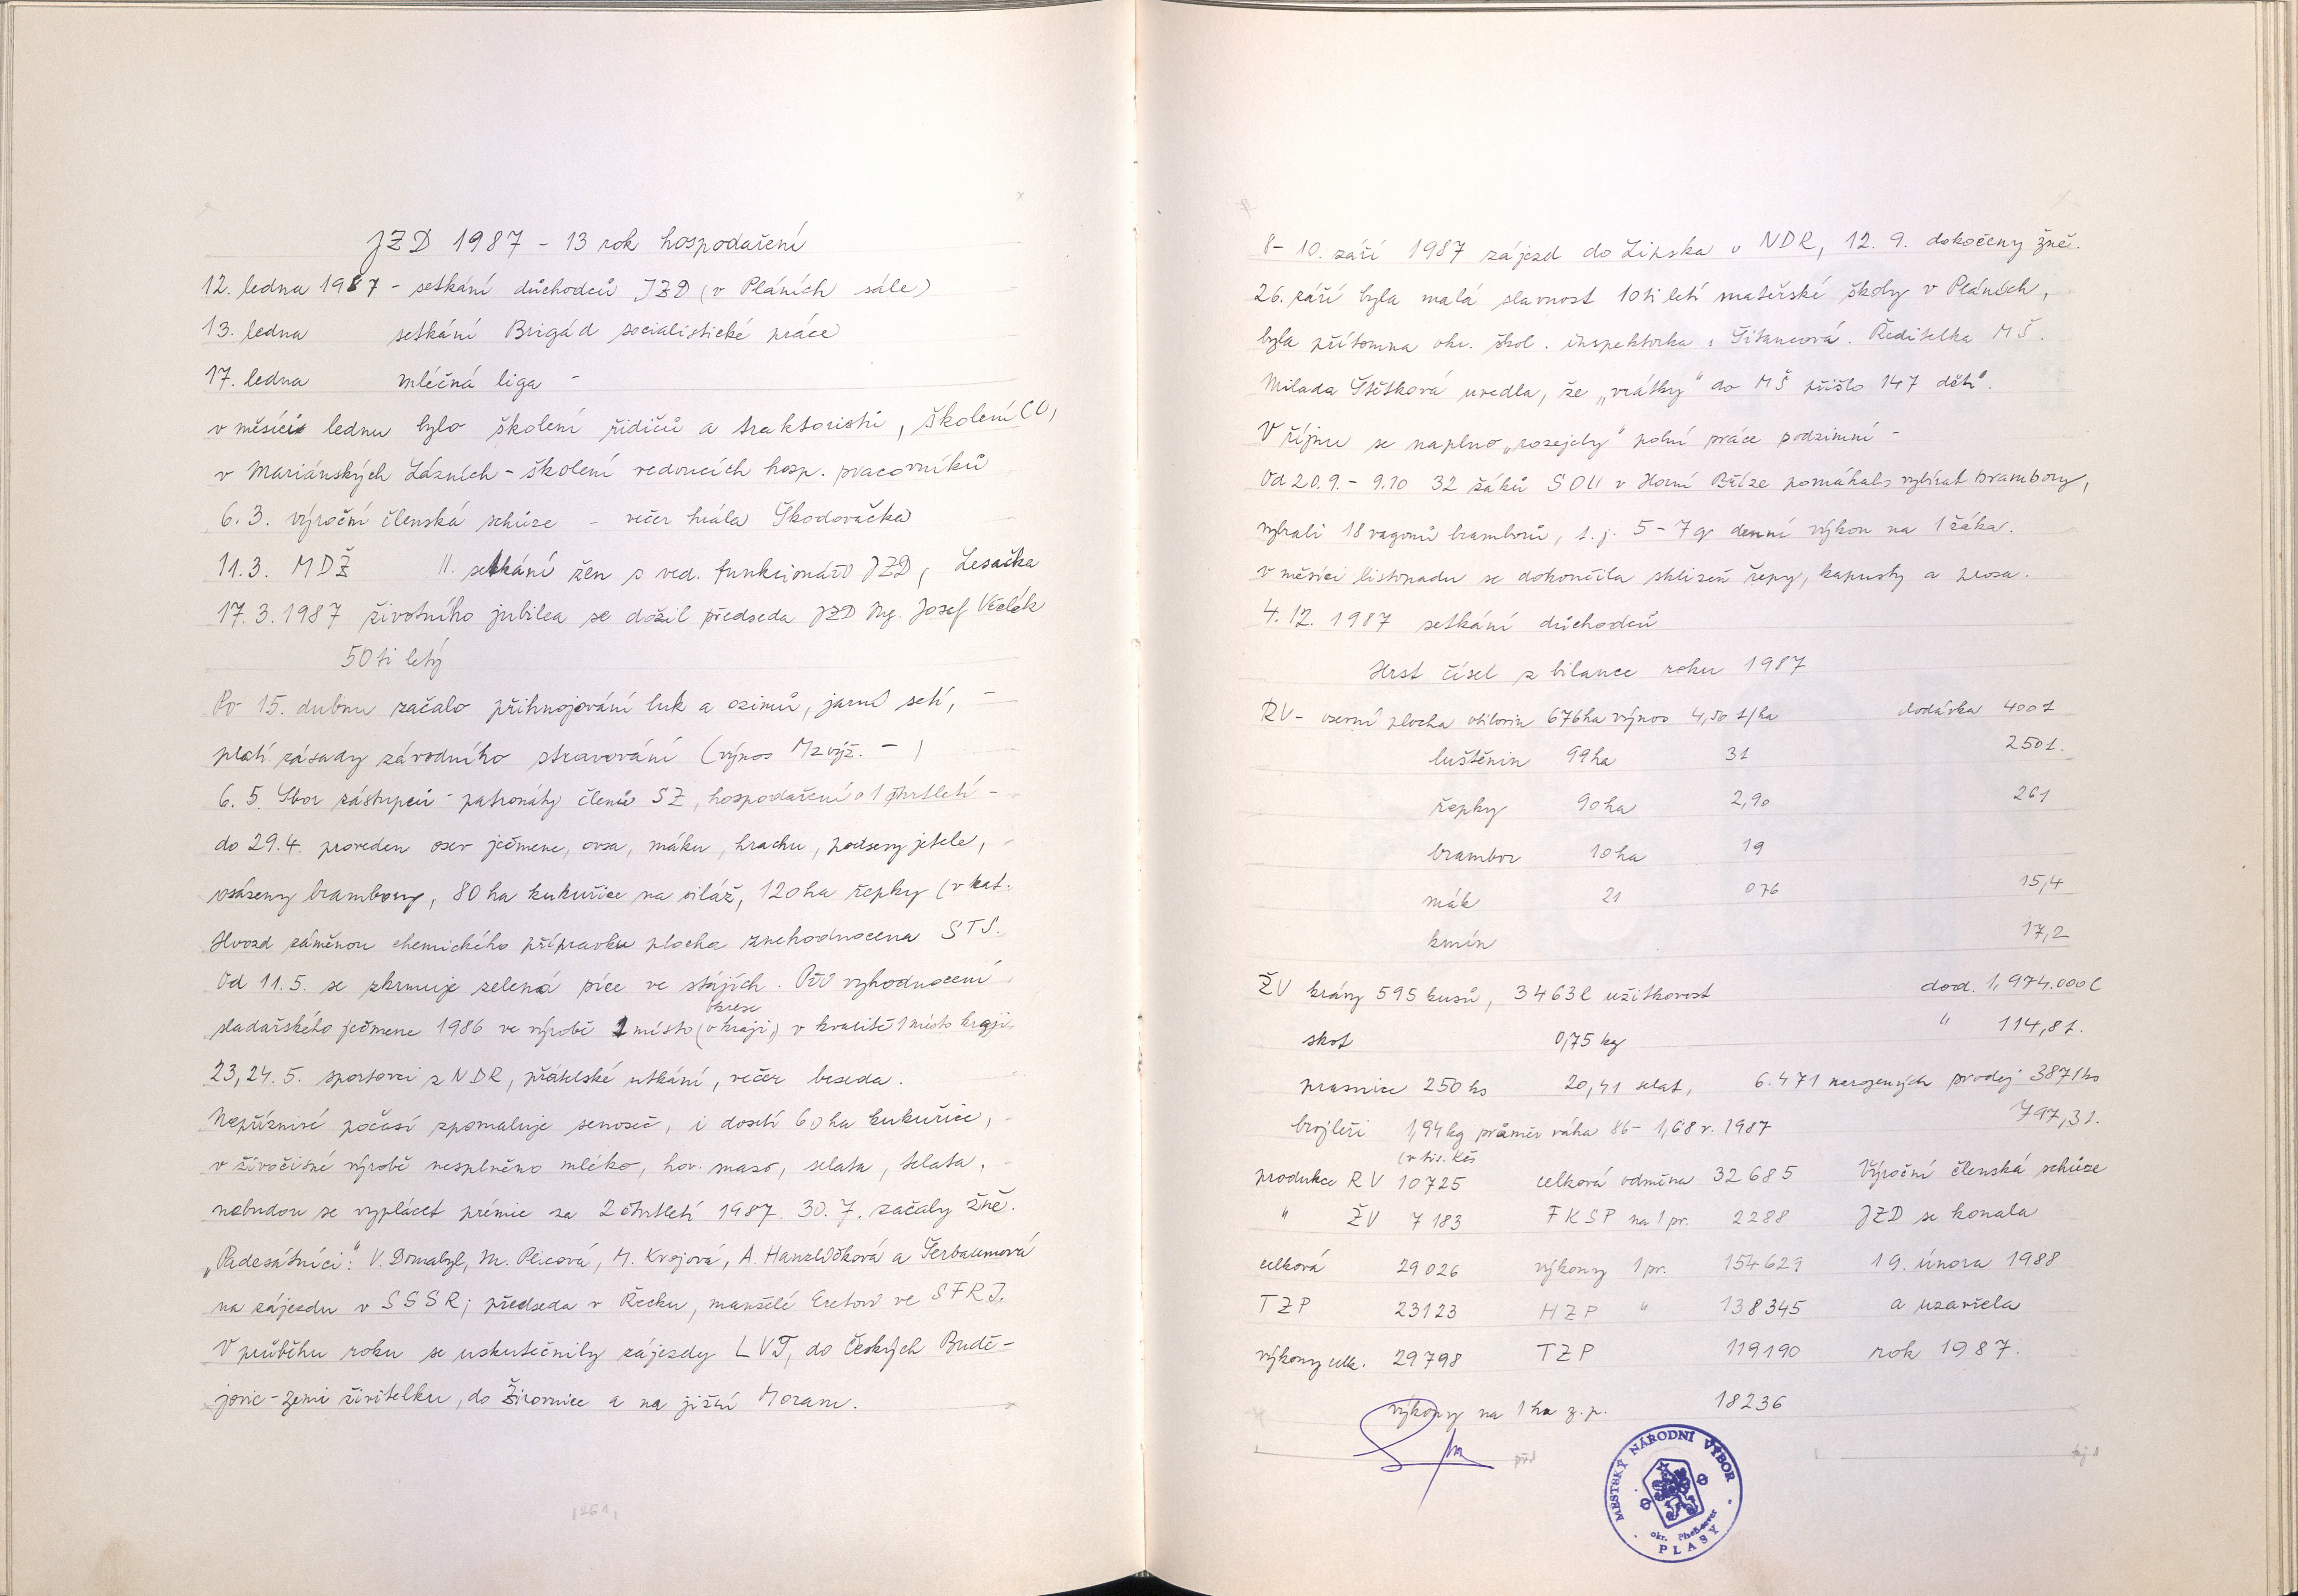 JZD 1987 - 13 rok hospodaření
12. ledna 1987 - setkání důchodců JZD (v Pláních sále)
13. ledna setkání Brigád socialistické práce
17. ledna mléčná liga -
v měsíci lednu bylo školení řidičů a traktoristů, školení CO,
v Mariánských Lázních - školení vedoucích hosp. pracovníků
6. 3. výroční členská schůze - večer hrála Škodovačka
11.3. MDŽ 11. setkání žen s ved. funkcionáři JZD, Lesačka
17. 3. 1987 životního jubilea se dožil předseda JZD Ing. Josef Včelák
50ti letý
Po 15. dubnu začalo přihnojování luk a ozimů, jarní setí, -
platí zásady závodního stravování (výnos Mzvýž. - )
6. 5. Sbor zástupců - patronáty členů SZ, hospodaření o 1 čtvrtletí -
do 29.4. proveden osev ječmene, ovsa, máku, hrachu, podsevy jetele,
osázeny brambory, 80 ha kukuřice na siláž, 120 ha řepky (v kat.
Hvozd záměnou chemického přípravku plocha znehodnocena STS.
Od 11. 5. se zkrmuje zelená píce ve stájích. Při vyhodnocení
okrese
sladařského ječmene 1986 ve výrobě 1 místo (v kraji) v kvalitě 1 místo kraji.
23, 24. 5. sportovci z NDR, přátelské utkání, večer beseda.
Nepříznivé počasí zpomaluje senoseč, i dosetí 60 ha kukuřice,
v živočišné výrobě nesplněno mléko, hov. maso, selata, telata,
nebudou se vyplácet prémie za 2 čtvrtletí 1987. 30. 7. začaly žně.
„Padesátníci": V. Domabyl, M. Plicová, M. Krojová, A. Hanzlíčková a Šerbaumová
na zájezdu v SSSR; předseda v Řecku, manželé Eretovi ve SFRJ.
V průběhu roku se uskutečnily zájezdy LVT, do Českých Budě-
jovic - Zemi živitelku, do Žirovnice a na jižní Moravu.
8 - 10. září 1987 zájezd do Lipska v NDR, 12. 9. dokočeny žně.
26. září byla malá slavnost 10ti letí mateřské školy v Pláních,
byla přítomna okr. škol. inspektorka s. Šitancová. Ředitelka MŠ.
Milada Štětková uvedla, že „vrátky" do MŠ přišlo 147 dětí.
V říjnu se naplno „rozejely" polní práce podzimní -
Od 20. 9. - 9.10 32 žáků SOU v Horní Bříze pomáhalo vybírat brambory,
vybrali 18 vagonů bramborů, t. j. 5 - 7 q denní výkon na 1 žáka.
v měsíci listopadu se dokončila sklizeň řepy, kapusty a prosa.
4. 12. 1987 setkání důchodců
Hrst čísel z bilance roku 1987
RV - osevní plocha obilovin 676 ha výnos 4,50 t/ha dodávka 400 t
luštěnin 99 ha 31 250 t.
řepky 90 ha 2,90 261
brambor 10 ha 19
mák 21 076 15,4
kmín 17,2
ŽV krávy 595 kusů, 3463 l užitkovost dod. 1,974.000 l
skot 0,75 kg " 114,8 t.
prasnice 250 ks 20,41 selat, 6.471 narozených prodej 3871 ks
brojleři 1,94 kg průměr váha 86 - 1,68 r. 1987 797,3 t.
(v tis. Kčs
produkce RV 10725 celková odměna 32 685 Výroční členská schůze
" ŽV 7 183 FKSP na 1 pr. 2288 JZD se konala
celková 29 026 výkony 1 pr. 154 629 19. února 1988
TZP 23123 HZP " 138345 a uzavřela
výkony celk. 29 798 TZP 119190 rok 1987.
výkony na 1 ha z. p. 18236
MĚSTSKÝ NÁRODNÍ VÝBOR
okr. Plzeň-sever
PLASY